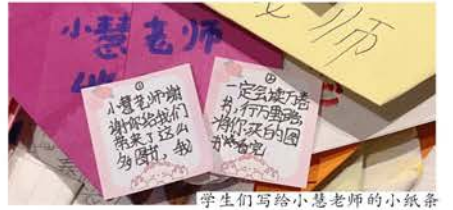 小慧老师
老师
①
小慧老师谢
谢你给我们
带来了这么
多图书，我
②
一定会读万卷
书，行万里路
将你买的图
书
学生们写给小慧老师的小纸条